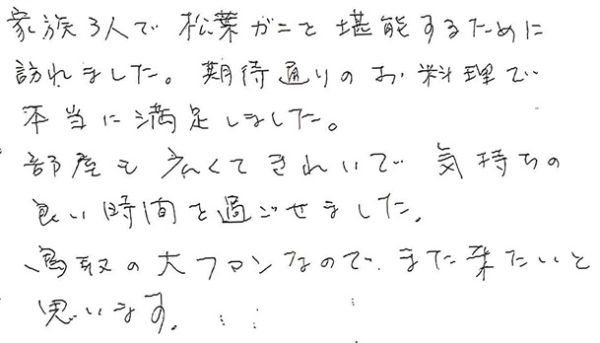 家族3人で松葉ガニを堪能するために
訪れました。期待通りのお料理で
本当に満足しました。
部屋も広くてきれいで気持ちの
良い時間を過ごせました。
鳥取の大ファンなので、また来たいと
思います。